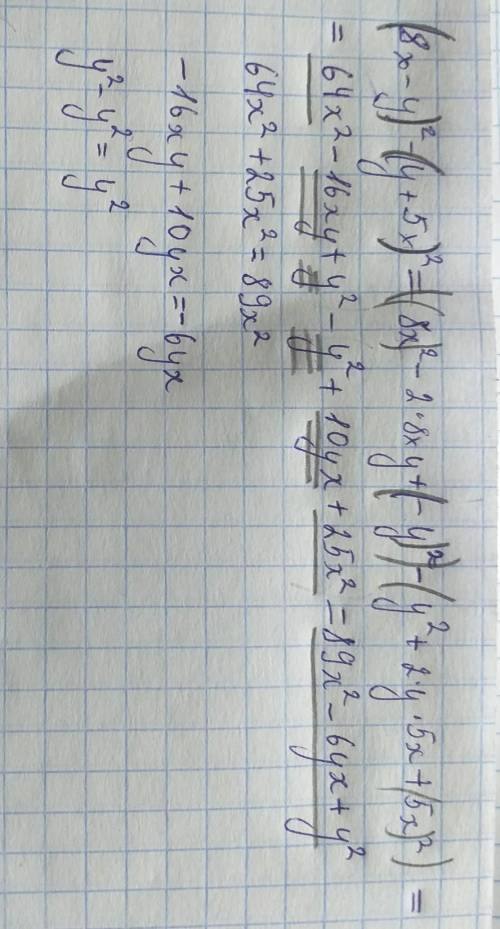 (8x-y)²-(y+5x)²=(8x)²-2·8xy+(-y)²-(y²+2·y·5x+(5x)²)=
=64x²-16xy+y²-y²+10yx+25x²=89x²-6yx+y²
64x²+25x²=89x²
-16xy+10yx=-6yx
y²-y²=y²